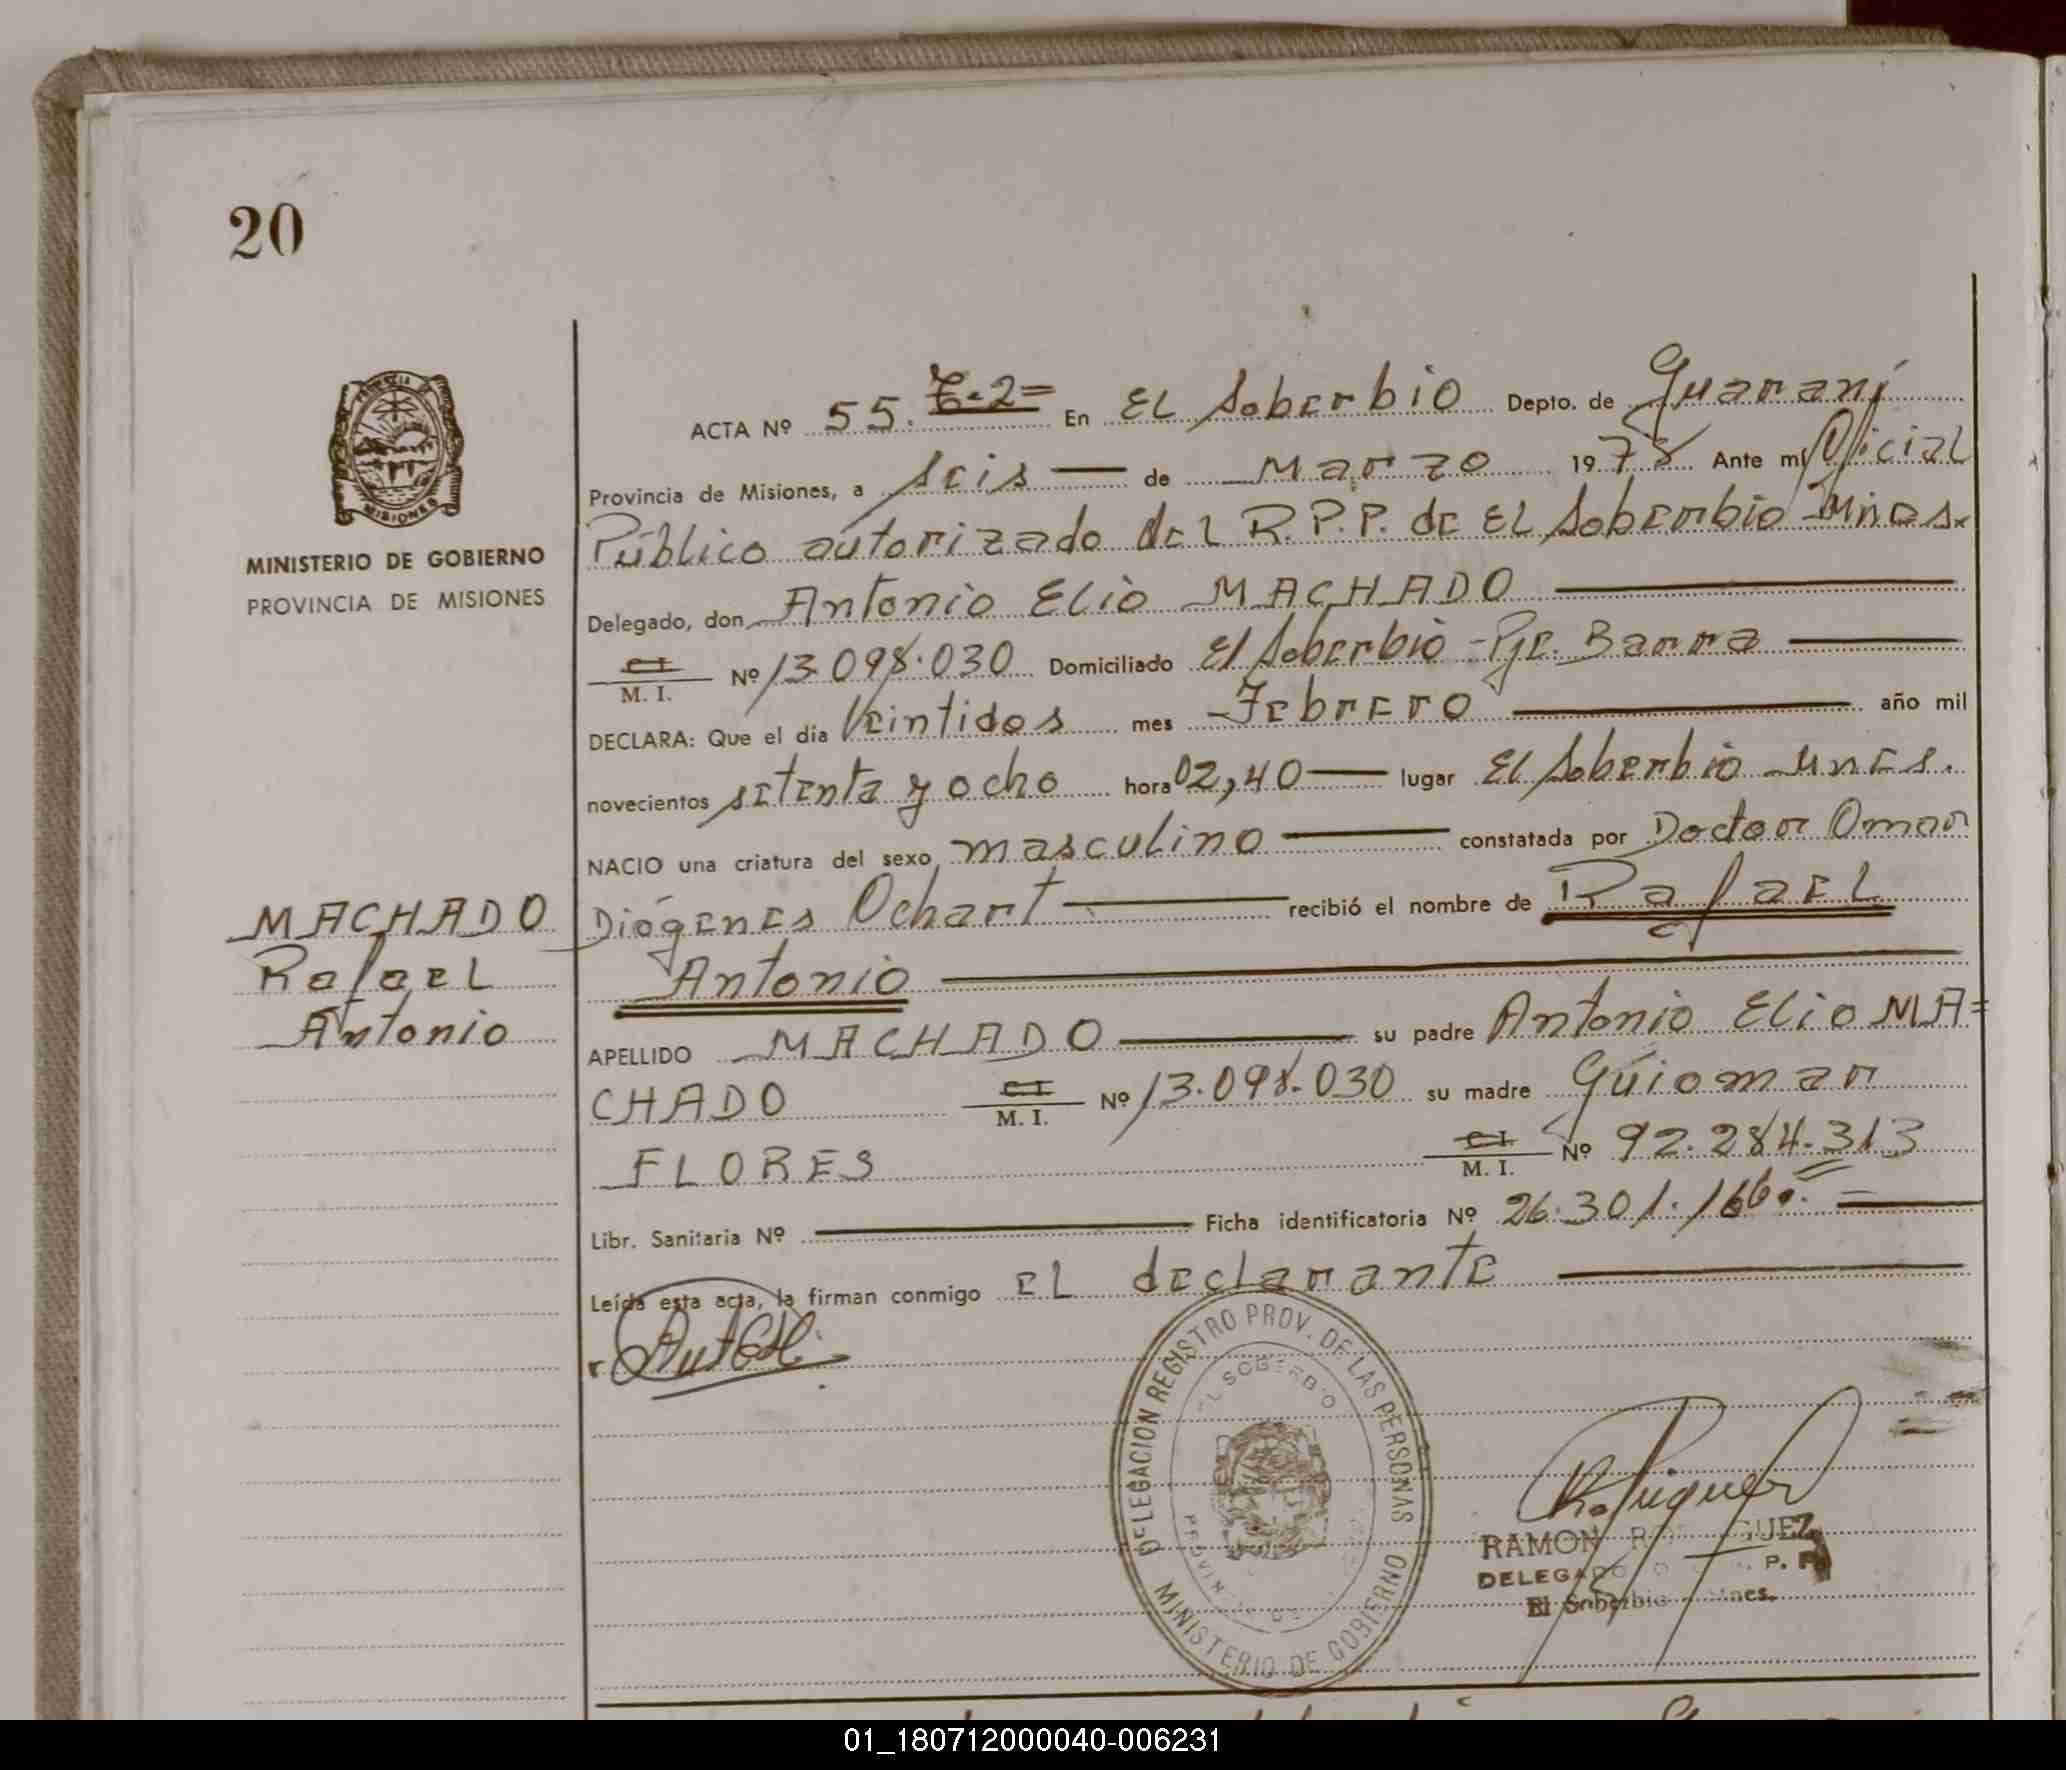 20
PROVINCIA
MISIONES
MINISTERIO DE GOBIERNO
PROVINCIA DE MISIONES
MACHADO
Rafael
Antonio
ACTA Nº 55. T-2= En El Soberbio Depto. de Guaraní
Provincia de Misiones, a seis — de Marzo 1978 Ante mí Oficial
Público autorizado del R.P.P. de El Soberbio Mnes.
Delegado, don Antonio Elio MACHADO
C.I. M. I. Nº 13.098.030 Domiciliado El Soberbio - Pje. Barra
DECLARA: Que el dia Veintidos mes Febrero año mil
novecientos setenta y ocho hora 02,40 lugar El Soberbio Mnes.
NACIO una criatura del sexo masculino constatada por Doctor Omar
Diógenes Ochart recibió el nombre de Rafael
Antonio
APELLIDO MACHADO su padre Antonio Elio MA=
CHADO C.I. M. I. Nº 13.098.030 su madre Guiomar
FLORES C.I. M. I. Nº 92.284.313
Libr. Sanitaria Nº Ficha identificatoria Nº 26.301.166. =
Leída esta acta, la firman conmigo el declarante
DELEGACION REGISTRO PROV. DE LAS PERSONAS
EL SOBERBIO
MINISTERIO DE GOBIERNO
Rodriguez
RAMON RODRIGUEZ
DELEGADO P. P.
El Soberbio Mnes.
01_180712000040-006231